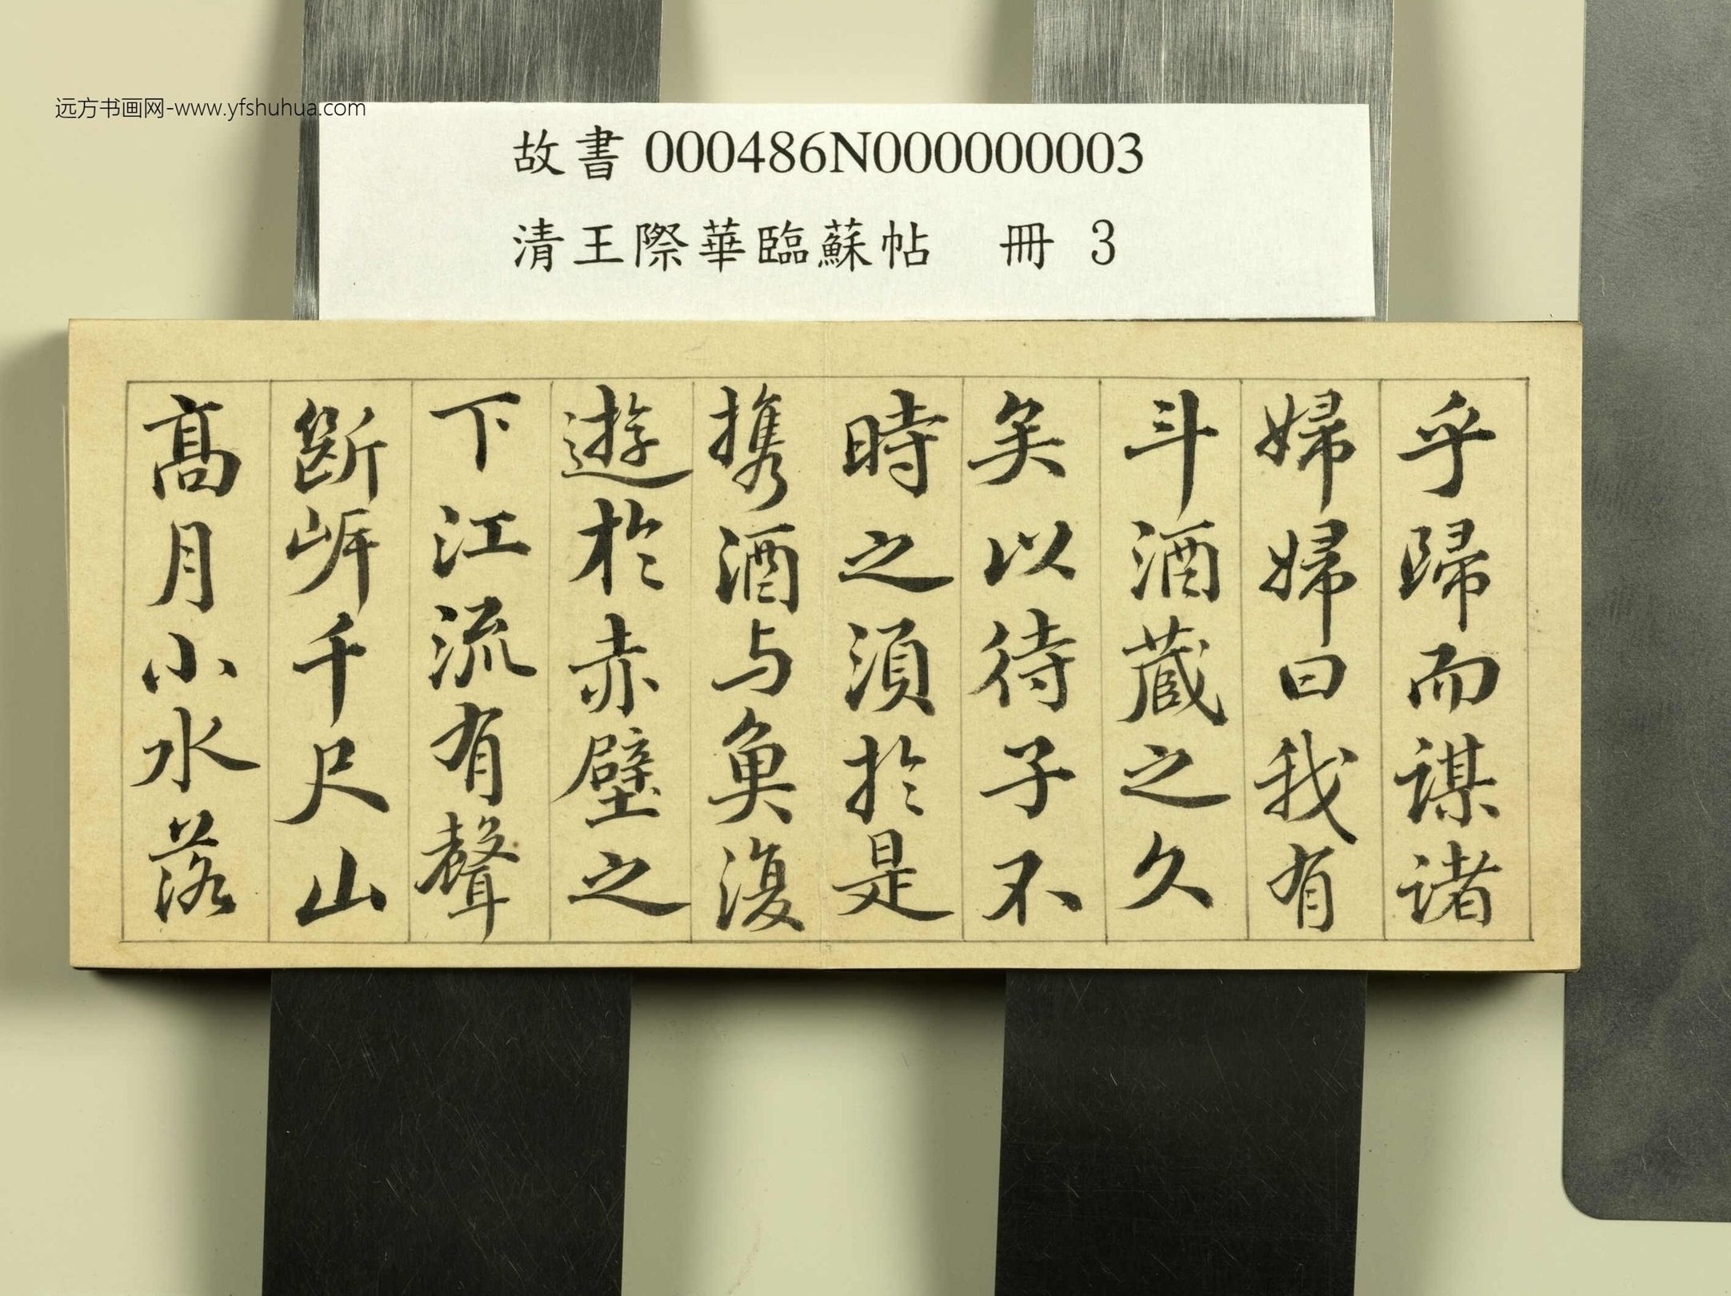 远方书画网-www.yfshuhua.com
故書 000486N000000003
清王際華臨蘇帖 冊 3
乎歸而謀諸
婦婦曰我有
斗酒蔵之久
矣以待子不
時之湏扵是
携酒与魚復
遊扵赤壁之
下江流有聲
斷岸千尺山
髙月小水落